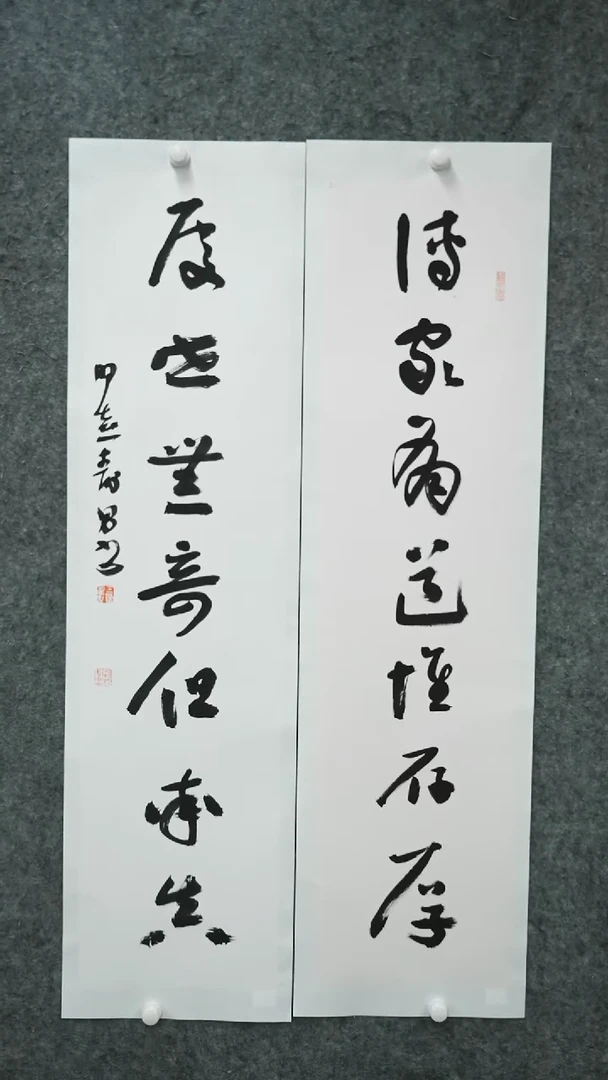 传家有道惟存厚
处世无奇但率真